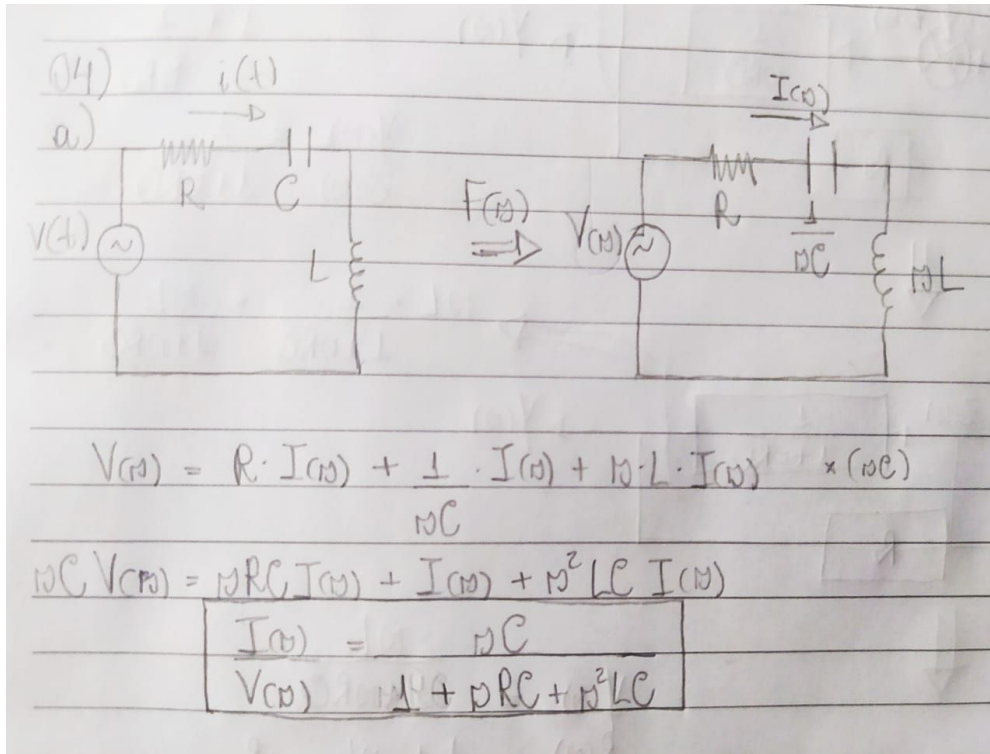 04)
a)
i(t)
R
C
V(t)
L
F(s)
I(s)
V(s)
R
1/sC
sL
V(s) = R · I(s) + 1/sC · I(s) + s·L·I(s) × (sC)
sC V(s) = sRC I(s) + I(s) + s²LC I(s)
I(s)/V(s) = sC/1 + sRC + s²LC